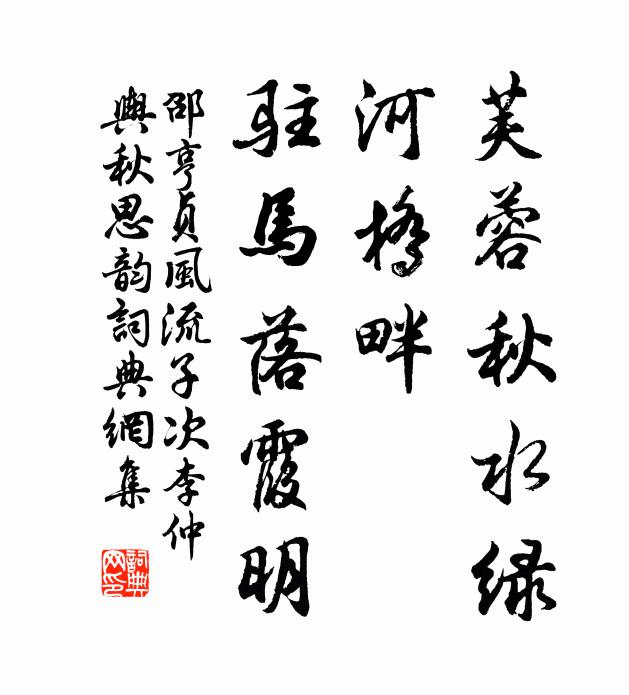 芙蓉秋水緑
河橋畔
駐馬落霞明
邵亨貞風流子次李仲
輿秋思韵詞典網集
詞典網印